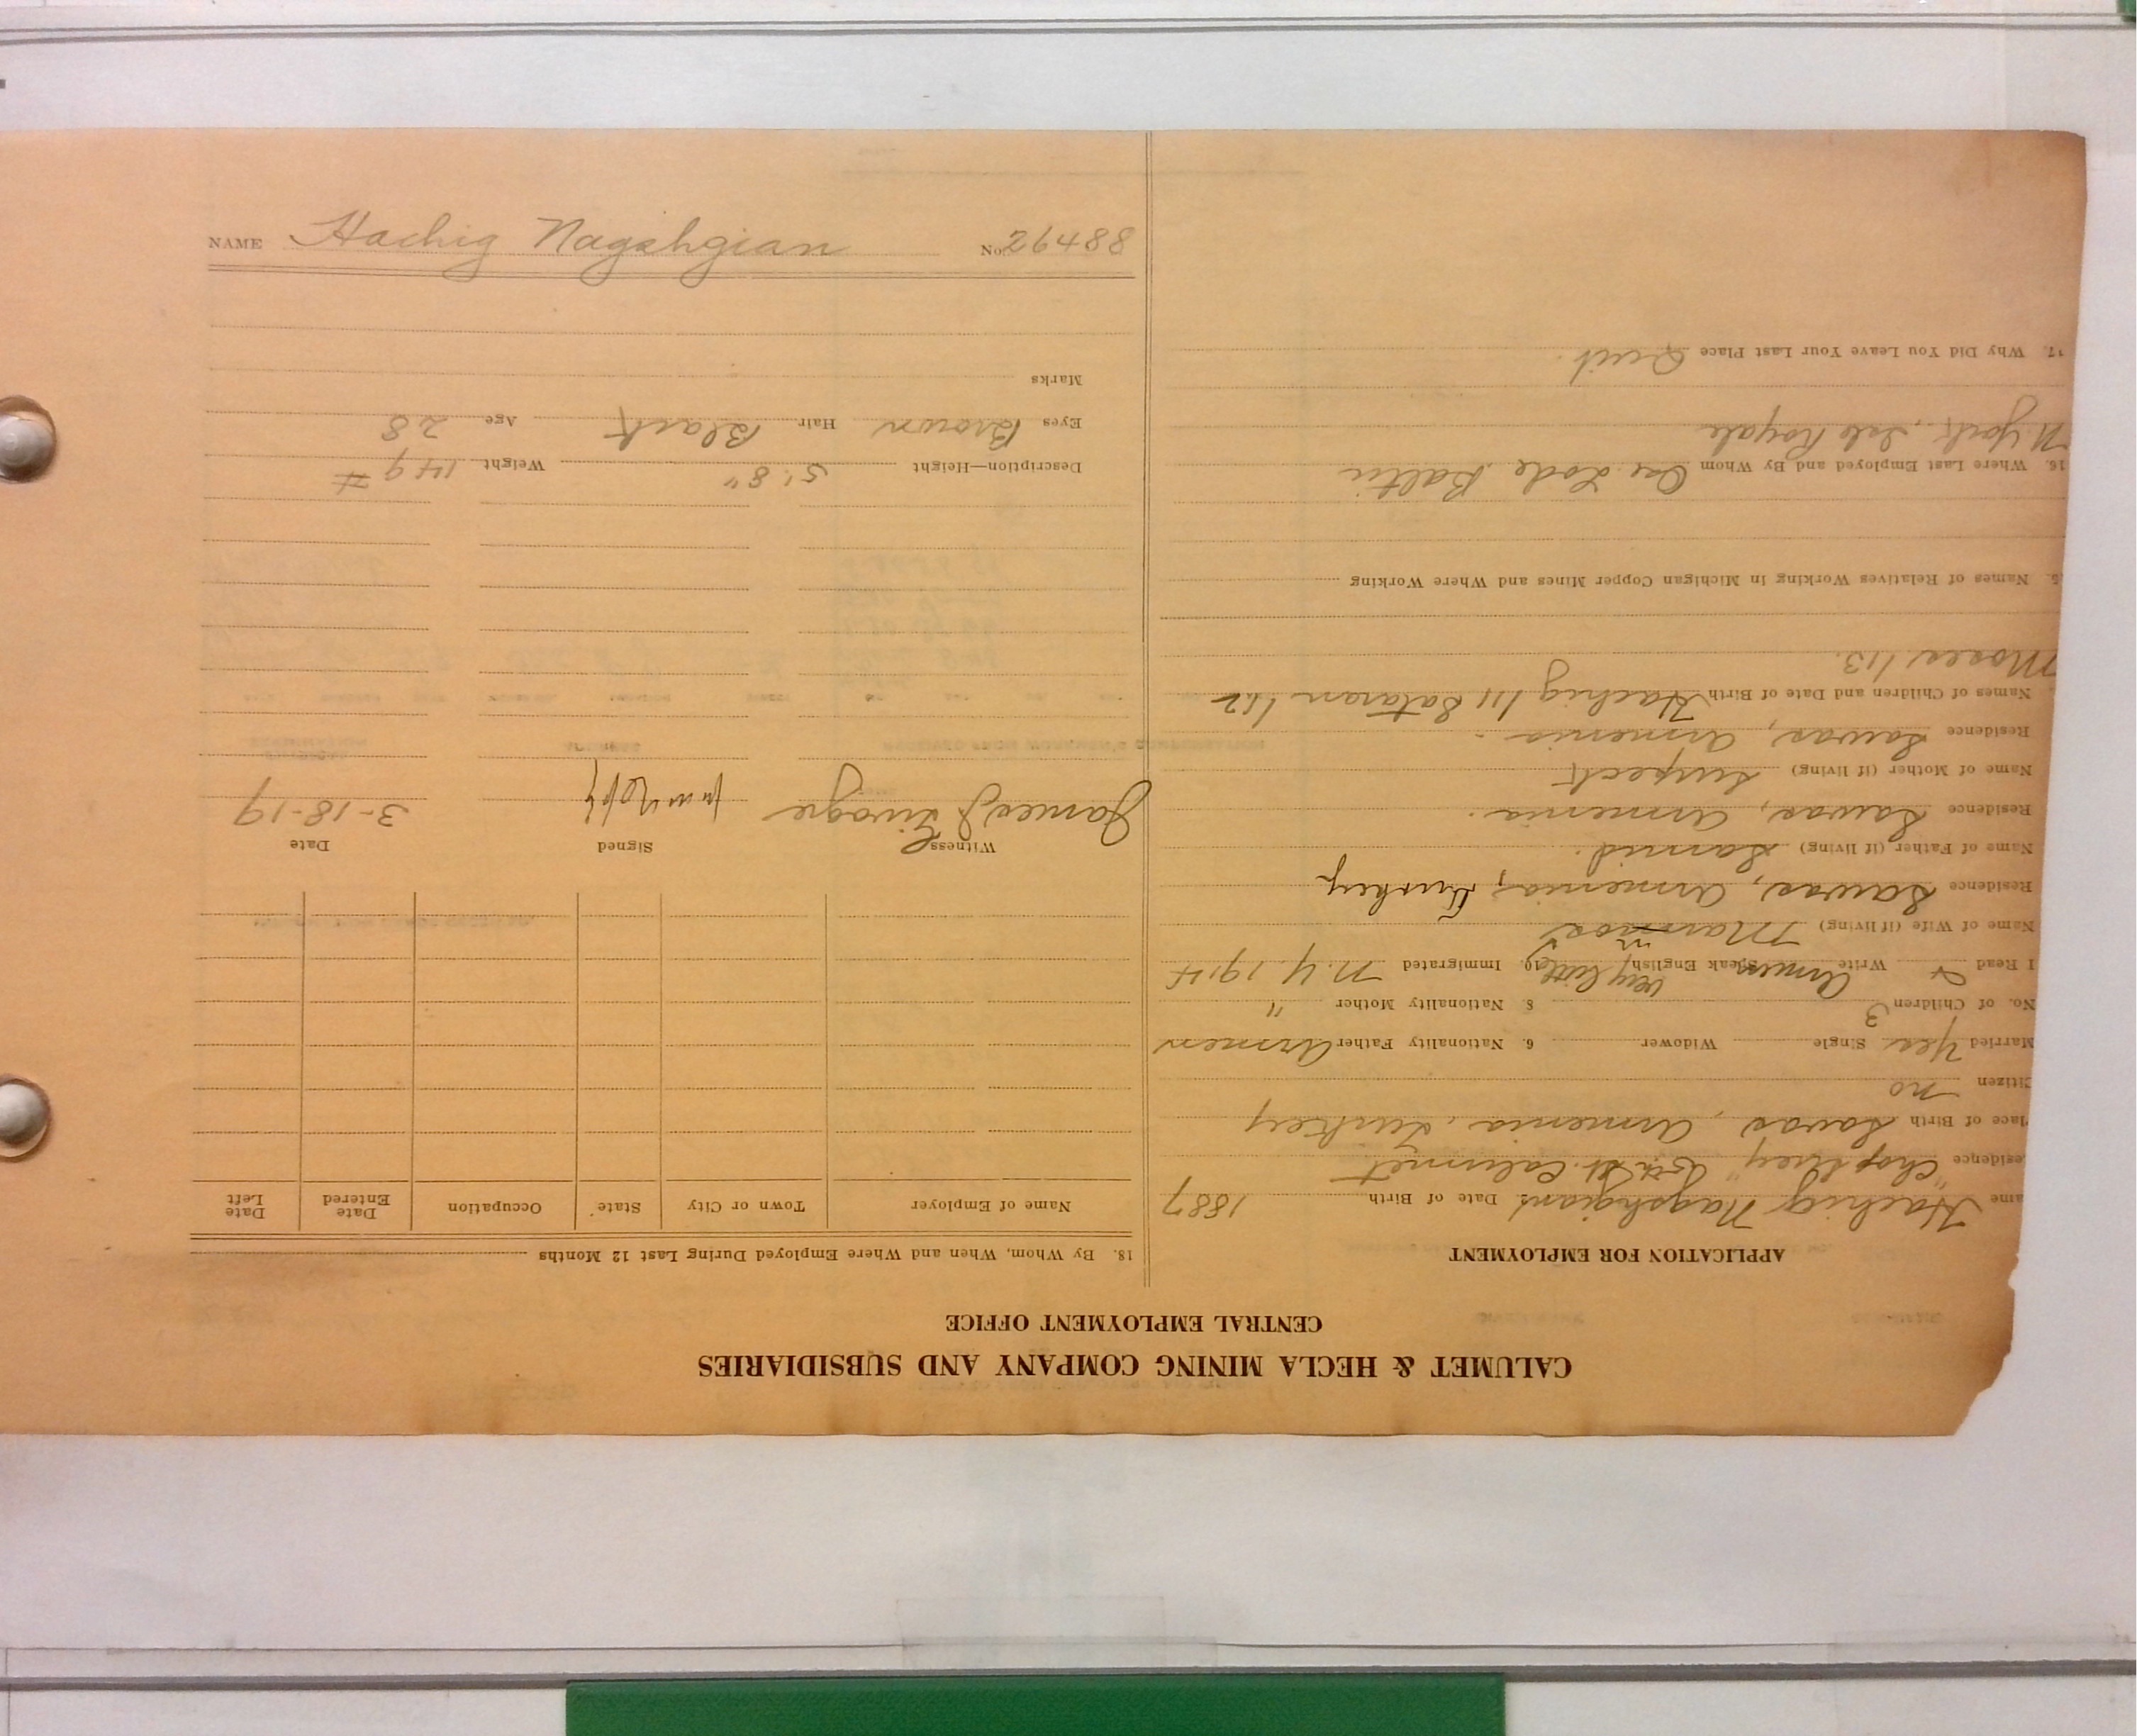 NAME Hachig Nagshgian No. 26488
CALUMET & HECLA MINING COMPANY AND SUBSIDIARIES
CENTRAL EMPLOYMENT OFFICE
APPLICATION FOR EMPLOYMENT
ame Hachig Nagshgian 2. Date of Birth 1887
esidence "Chop Suey" 5th St. Calumet
lace of Birth Sawas, Armenia, Turkey
Citizen no
Married Yes Single Widower 6. Nationality Father Armen
No. of Children 3 8. Nationality Mother "
I Read Write Armen Speak English very little 10. Immigrated N.Y 1914
Name of Wife (if living)
Residence Sawas, Armenia, Turkey
Name of Father (if living)
Residence Sawas, Armenia.
Name of Mother (if living) Surpect
Residence Sawas, Armenia.
Names of Children and Date of Birth Hachig 1/11 Sataran 1/12
1/13.
5. Names of Relatives Working in Michigan Copper Mines and Where Working
16. Where Last Employed and By Whom Lode Baltic
N York, Isle Royale
17. Why Did You Leave Your Last Place Quit.
18. By Whom, When and Where Employed During Last 12 Months
Name of Employer Town or City State Occupation Date Entered Date Left
Witness Signed Date
James J 3-18-19
Description—Height 5' 8" Weight 149 #
Eyes Brown Hair Black Age 28
Marks